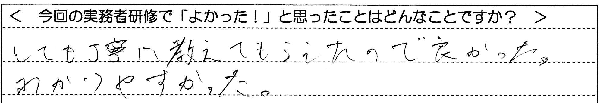 ＜ 今回の実務者研修で「よかった！」と思ったことはどんなことですか？ ＞
とても丁寧に教えてもらえたので良かった。
わかりやすかった。